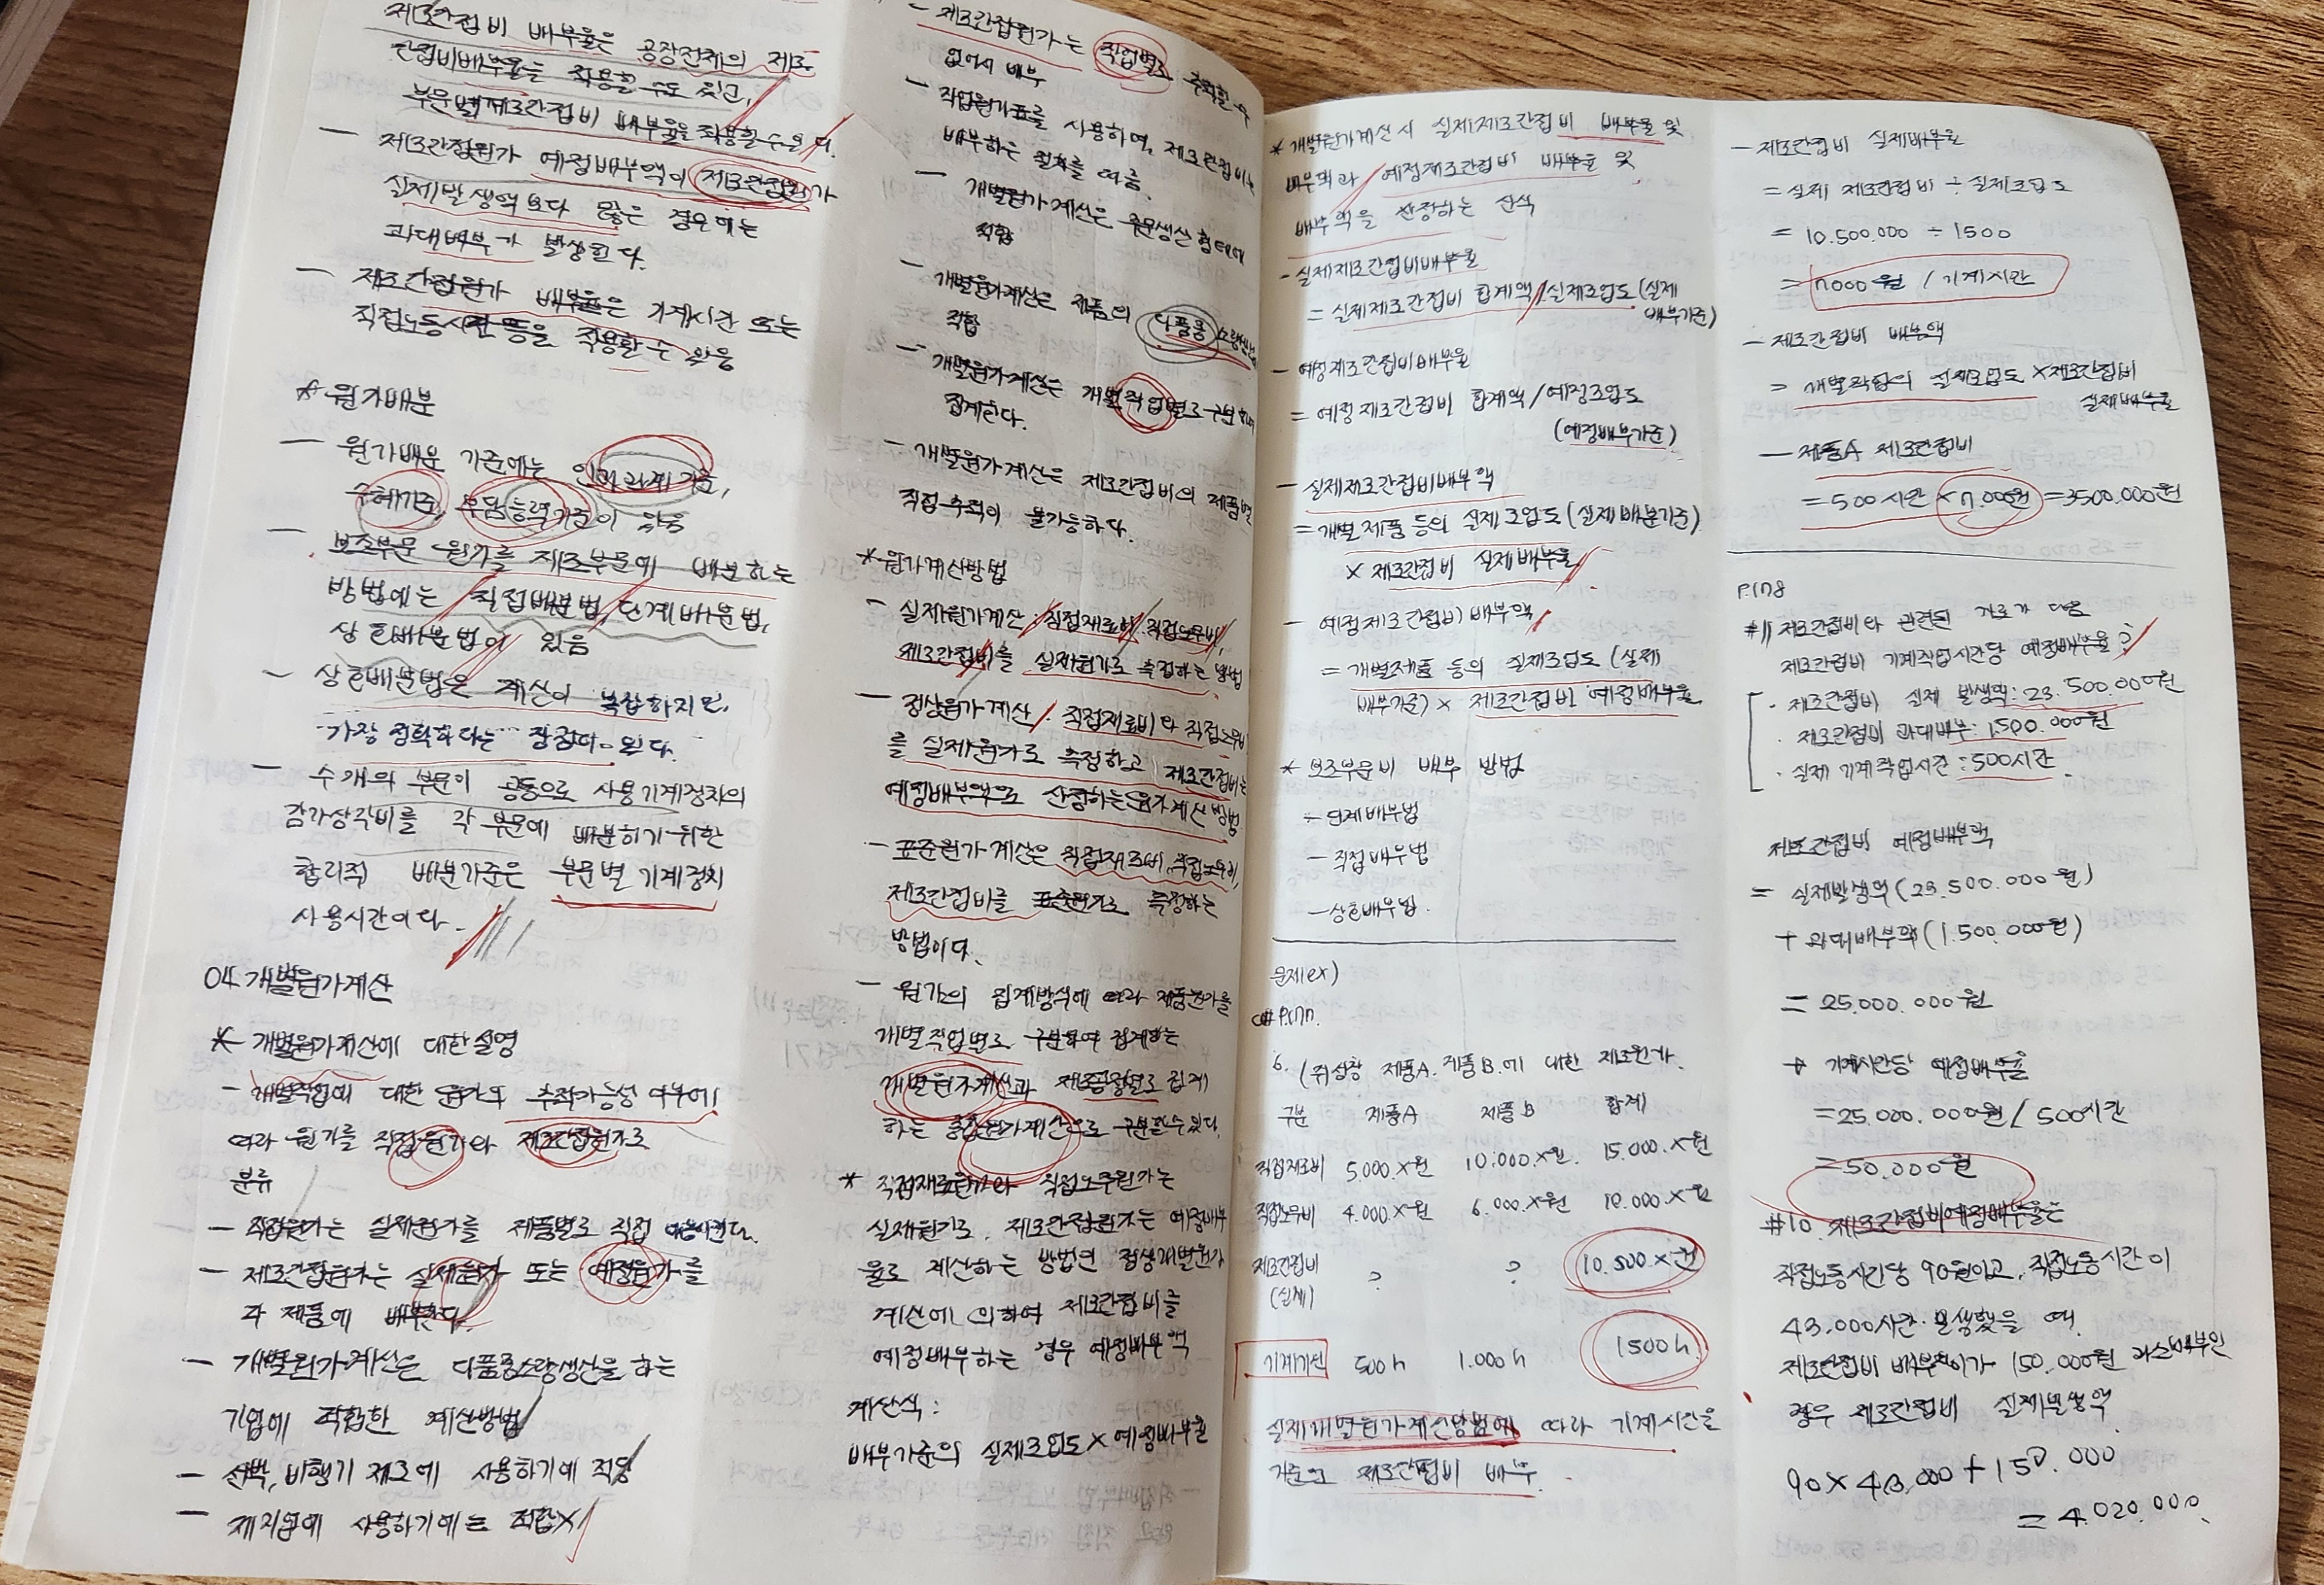 제조간접비 배부율은 공장전체의 제조
간접비배부율을 적용할 수도 있고,
부문별제조간접비 배부율을 적용할수도있다.
— 제조간접원가 예정배부액이 제조간접원가
실제발생액보다 많은 경우에는
과대배부가 발생한다.
— 제조간접원가 배부율은 기계시간 또는
직접노동시간 등을 적용할 수 있음
* 원가배분
— 원가배분 기준에는 인과관계기준,
수혜기준, 부담능력기준이 있음
— 보조부문 원가를 제조부문에 배분하는
방법에는 직접배분법, 단계배분법,
상호배분법이 있음
— 상호배분법은 계산이 복잡하지만,
가장 정확하다는 장점다. 있다.
— 수개의 부문이 공동으로 사용기계장치의
감가상각비를 각 부문에 배분하기 위한
합리적 배분기준은 부문별 기계장치
사용시간이다.
04 개별원가계산
* 개별원가계산에 대한 설명
— 개별작업에 대한 원가의 추적가능성 여부에
따라 원가를 직접원가와 제조간접원가로
분류
— 직접원가는 실제원가를 제품별로 직접
— 제조간접원가는 실제원가 또는 예정원가를
각 제품에 배부한다.
— 개별원가계산은 다품종소량생산을 하는
기업에 적합한 계산방법
— 선박, 비행기 제조에 사용하기에 적당
— 제지업에 사용하기에는 적합X
— 제조간접원가는 작업별로 추적할 수
없어서 배부
— 작업원가표를 사용하며, 제조간접비는
배부하는 절차를 여금
— 개별원가계산은 주문생산 형태에
적합
— 개별원가계산은 제품의 다품종 소량생산에
적합
— 개별원가계산은 개별작업별로 구분하여
집계한다.
— 개별원가계산은 제조간접비의 제품별
직접 추적이 불가능하다.
* 원가계산방법
— 실제원가계산 : 직접재료비, 직접노무비,
제조간접비를 실제원가로 측정하는 방법
— 정상원가계산 : 직접재료비와 직접노무비
를 실제원가로 측정하고 제조간접비는
예정배부액으로 산정하는원가계산 방법
— 표준원가계산은 직접재료비, 직접노무비,
제조간접비를 표준원가로 측정하는
방법이다.
— 원가의 집계방식에 따라 제품원가를
개별작업별로 구분하여 집계하는
개별원가계산과 제조공정별로 집계
하는 종합원가계산으로 구분할수있다.
* 직접재료원가와 직접노무원가는
실제원가로, 제조간접원가는 예정배부
율로 계산하는 방법인 정상개별원가
계산에 의하여 제조간접비를
예정배부하는 경우 예정배부액
계산식 :
배부기준의 실제조업도 X 예정배부율
* 개별원가계산시 실제제조간접비 배부율 및
배부액과 예정제조간접비 배부율 및
배부액을 산정하는 산식
- 실제제조간접비배부율
= 실제제조간접비 합계액 / 실제조업도 (실제
배부기준)
— 예정제조간접비배부율
= 예정제조간접비 합계액 / 예정조업도
(예정배부기준)
— 실제제조간접비배부액
= 개별 제품 등의 실제조업도 (실제배분기준)
X 제조간접비 실제배부율
— 예정제조간접비 배부액
= 개별제품 등의 실제조업도 (실제
배부기준) X 제조간접비 예정배부율
* 보조부문비 배부 방법
— 단계배부법
— 직접배부법
— 상호배부법.
문제(ex)
6. (주)상장 제품A. 제품B.에 대한 제조원가.
구분 제품A 제품B 합계
직접재료비 5.000.X원 10.000.X원. 15.000.X원
직접노무비 4.000.X원 6.000.X원 10.000.X원
제조간접비 ? ? 10.500.X원
(실제)
기계시간 500h 1.000h 1500h
실제개별원가계산방법에 따라 기계시간을
기준으로 제조간접비 배부.
— 제조간접비 실제배부율
= 실제 제조간접비 ÷ 실제조업도
= 10.500.000 ÷ 1500
= 7000원 / 기계시간
— 제조간접비 배부액
= 개별작업의 실제조업도 X 제조간접비
실제배부율
— 제품A 제조간접비
= 500시간 X 7.000원 = 3500.000원
P.178
#11 제조간접비와 관련된 자료가 다음
제조간접비 기계작업시간당 예정배부율?
· 제조간접비 실제 발생액 : 23.500.000원
· 제조간접비 과대배부 : 1.500.000원
· 실제 기계작업시간 : 500시간
제조간접비 예정배부액
= 실제발생액 (23.500.000원)
+ 과대배부액 (1.500.000원)
= 25.000.000원
→ 기계시간당 예정배부율
= 25.000.000원 / 500시간
= 50.000원
#10. 제조간접비예정배부율은
직접노동시간당 90원이고, 직접노동시간이
43.000시간 발생했을 때,
제조간접비 배부차이가 150.000원 과소배부인
경우 제조간접비 실제발생액
90 X 43.000 + 150.000
= 4.020.000.